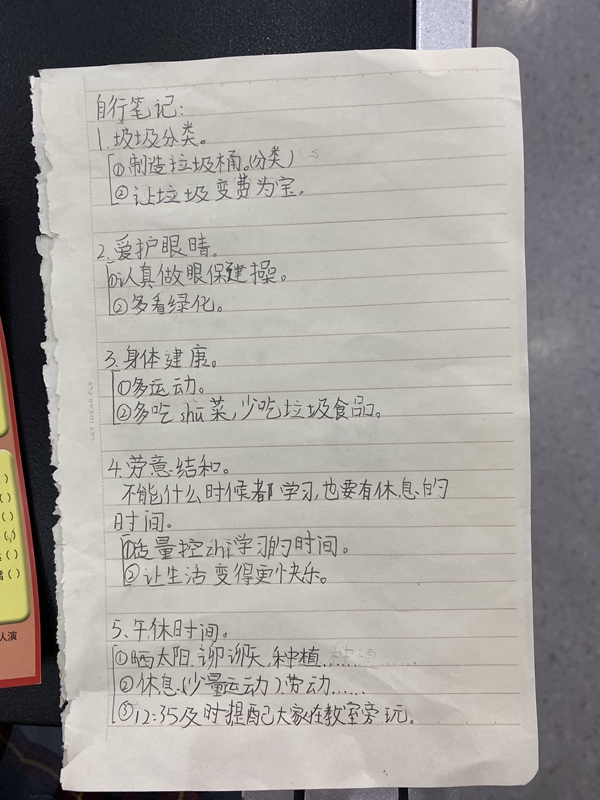 自行笔记:
1.圾圾分类。
①制造垃圾桶。(分类)
②让垃圾变费为宝。
2.爱护眼睛。
①认真做眼保建操。
②多看绿化。
3.身体建康。
①多运动。
②多吃shū菜,少吃垃圾食品。
4.劳意结和。
不能什么时候都学习,也要有休息的
时间。
①适量控zhì学习的时间。
②让生活变得更快乐。
5.午休时间。
①晒太阳.聊聊天,种植......
②休息.(少量运动).劳动......
③12:35及时提配大家在教室旁玩。
LET IDEAS FLY
人演